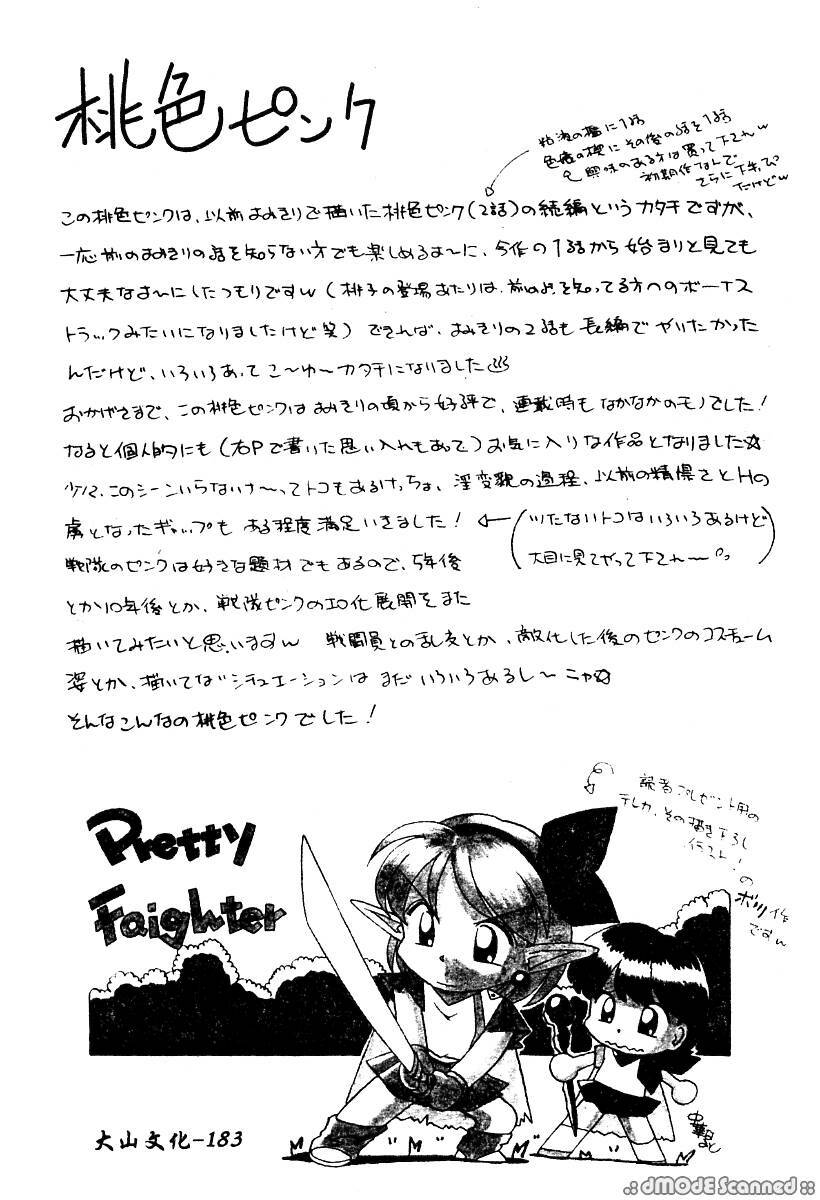 桃色ピンク
粘液の檻に1話
色癌の楔にその後の話を1話
興味のある方は買って下されw
初期作なんで
さらに下手っぴ
だけどw
この桃色ピンクは、以前よみきりで描いた桃色ピンク(2話)の続編というカタチですが、
一応前のよみきりの話を知らない方でも楽しめるよーに、今作の1話から始まりと見ても
大丈夫なよーにしたつもりですw(桃子の登場あたりは、前のを知ってる方へのボーナス
トラックみたいになりましたけど笑)できれば、よみきりの2話も長編でやりたかった
んだけど、いろいろあってこ〜ゆ〜カタチになりました
おかげさまで、この桃色ピンクはよみきりの頃から好評で、連載時もなかなかのモノでした!
なると個人的にも(右Pで書いた思い入れもあって)お気に入りな作品となりました☆
少々、このシーンいらないナ〜ってトコもあるけっちょ、淫変貌の過程、以前の精悍さとHの
虜となったギャップもある程度満足いきました!
ツたないトコはいろいろあるけど
大目に見てやって下され〜
戦隊のピンクは好きな題材でもあるので、5年後
とか10年後とか、戦隊ピンクのエロ化展開をまた
描いてみたいと思いますw 戦闘員との乱交とか、敵化した後のピンクのコスチューム
姿とか、描いてないシチュエーションはまだいろいろあるし〜ニャ☆
そんなこんなの桃色ピンクでした!
読者プレゼント用の
テレカ、その描き下ろし
イラスト!
の
ボツ作
ですw
Pretty
Faighter
大山文化-183
dMODE Scanned